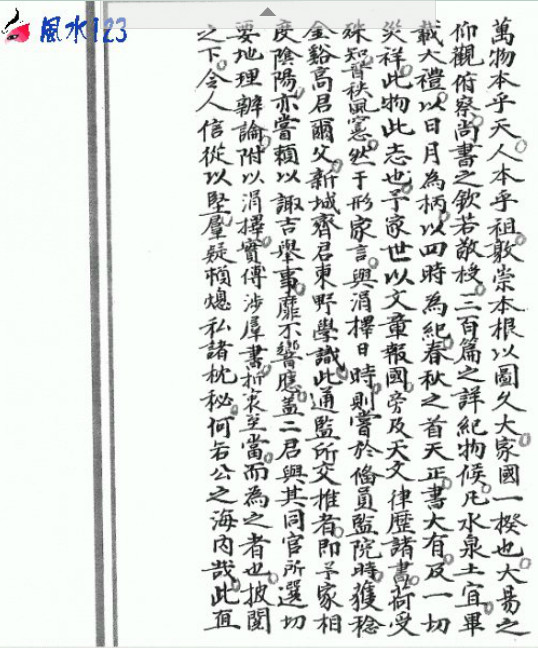 風水123
萬物本乎天。人本乎祖。敦崇本根以圖久大。家國一揆也。大易之
仰觀俯察。尚書之欽若敬授。三百篇之詳紀物候。凡水泉土宜。畢
載大禮。以日月為柄。以四時為紀。春秋之首天正。書大有。及一切
災祥。此物此志也。予家世以文章報國。旁及天文律歷諸書。荷受
殊知。晉秩風憲。然于形家言。與涓擇日時。則嘗於備員監院時。獲稔
金谿高君爾父。新城齊君東野。學識此通監所交推者。即予家相
度陰陽。亦嘗賴以諏吉舉事。靡不響應。蓋二君與其同官所選切
要地理辨論。附以涓擇。實傳涉羣書。折衷至當。而為之者也。披閱
之下。令人信從以堅。羣疑頓熄。私諸枕秘。何若公之海內哉。此直